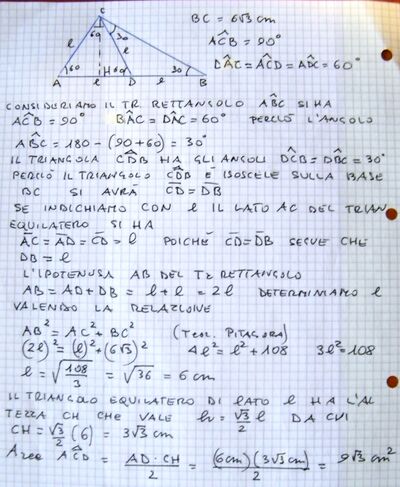 C
BC = 6√3 cm
60 30
AĈB = 90°
l l
DÂC = AĈD = AD̂C = 60°
60 60 30
A l H D B
CONSIDERIAMO IL TR. RETTANGOLO AB̂C SI HA
AĈB = 90° BÂC = DÂC = 60° PERCIÒ L'ANGOLO
AB̂C = 180 - (90+60) = 30°
IL TRIANGOLA CD̂B HA GLI ANGOLI DĈB = DB̂C = 30°
PERCIÒ IL TRIANGOLO CD̂B È ISOSCELE SULLA BASE
BC SI AVRÀ CD = DB
SE INDICHIAMO CON l IL LATO AC DEL TRIAN
EQUILATERO SI HA
AC = AD = CD = l POICHÉ CD = DB SEGUE CHE
DB = l
L'IPOTENUSA AB DEL TR RETTANGOLO
AB = AD + DB = l + l = 2l DETERMINIAMO l
VALENDO LA RELAZIONE
AB² = AC² + BC² (TEOR. PITAGORA)
(2l)² = (l)² + (6√3)² 4l² = l² + 108 3l² = 108
l = √108/3 = √36 = 6 cm
IL TRIANGOLO EQUILATERO DI LATO l HA L'AL
TEZZA CH CHE VALE h = √3/2 l DA CUI
CH = √3/2 (6) = 3√3 cm
Area AĈD = AD · CH / 2 = (6cm)(3√3 cm) / 2 = 9√3 cm²